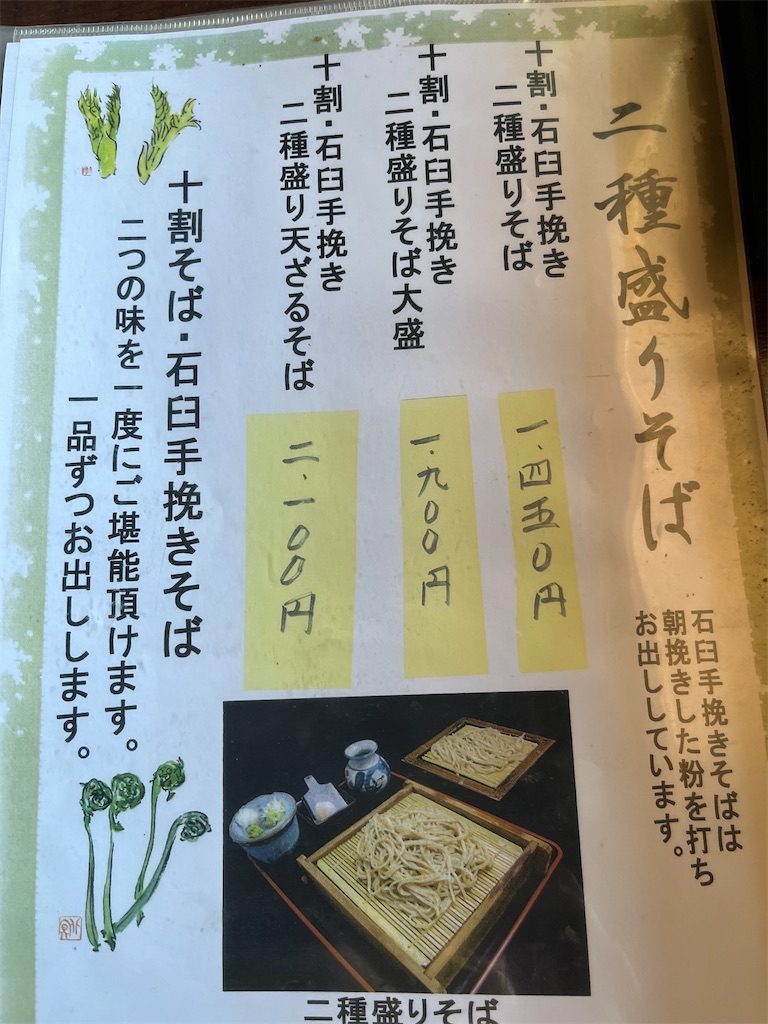 二種盛りそば
石臼手挽きそばは
朝挽きした粉を打ち
お出ししています。
十割・石臼手挽き
二種盛りそば
一.四五〇円
十割・石臼手挽き
二種盛りそば大盛
一.九〇〇円
十割・石臼手挽き
二種盛り天ざるそば
二.一〇〇円
十割そば・石臼手挽きそば
二つの味を一度にご堪能頂けます。
一品ずつお出しします。
二種盛りそば